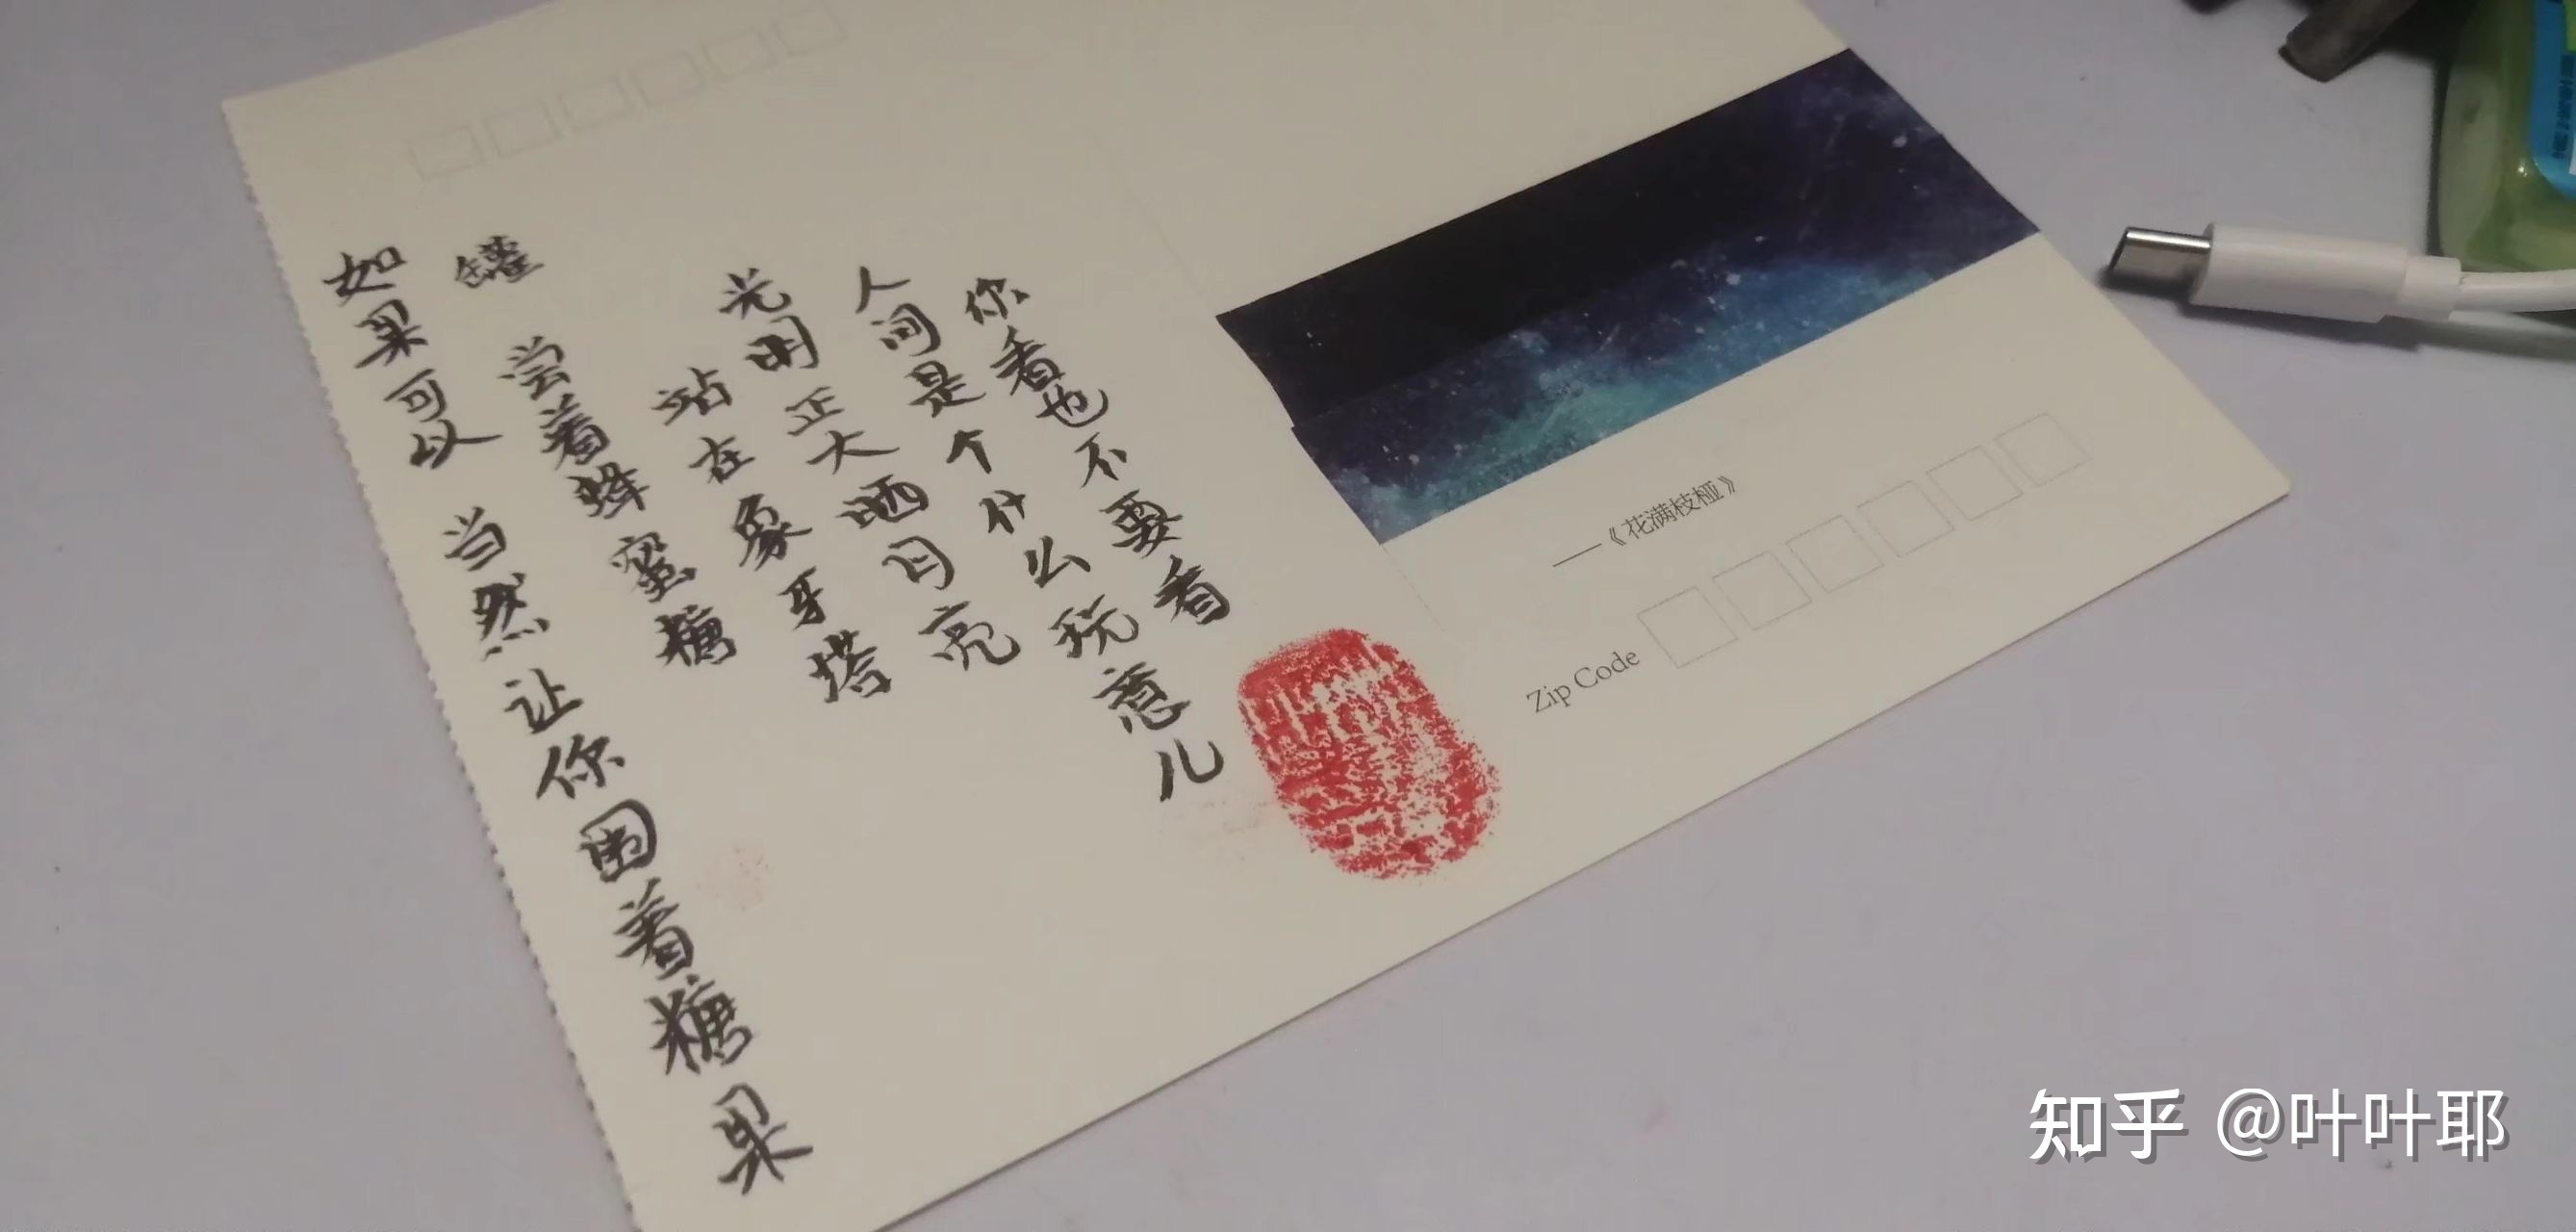 如果可以 当然让你着糖果
罐 尝着蜂蜜糖
站在象牙塔
光明正大晒月亮
人间是个什么玩意儿
你看也不要看
——《花满枝桠》
Zip Code
知乎 @叶叶耶